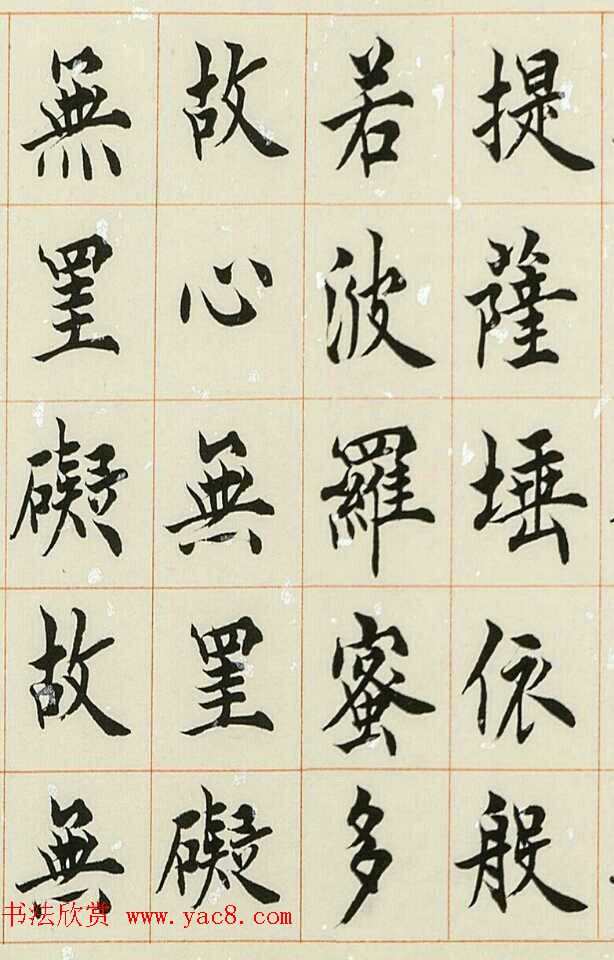 提薩埵依般
若波羅蜜多
故心無罣礙
無罣礙故無
书法欣赏 www.yac8.com